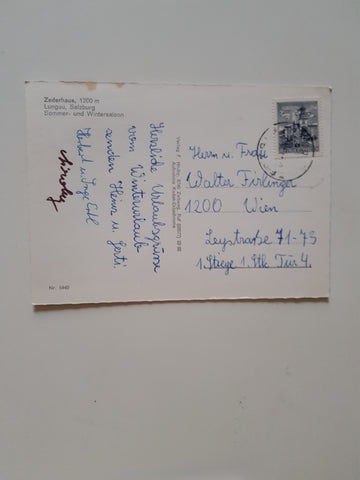 Zederhaus, 1200 m
Lungau, Salzburg
Sommer- und Wintersaison
Herzliche Urlaubsgrüsse
vom Winterurlaub
senden Heinz u. Gerti
Herbert u. Inge
Nr. 5440
Verlag F.
Herrn u. Frau
Walter Fürlinger
1200 Wien
Leystraße 71-73
1. Stiege 1. Stk. Tür 4.